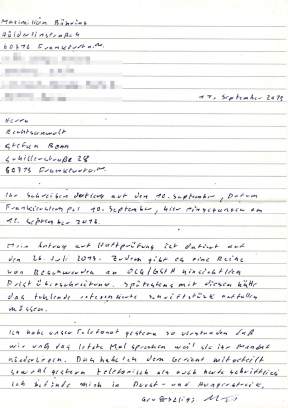 Maximilian Bähring
Hölderlinstraße 4
60316 Frankfurt a.M.
17. September 2015
Herrn
Rechtsanwalt
Stefan Bonn
Schillerstraße 28
60313 Frankfurt a.M.
Ihr Schreiben auf den 10. September, Datum
Frankierstempel 10. September, hier eingegangen am
September
Mein Antrag auf Haftprüfung ist datiert auf
den 26. Juli 2015. Zudem gibt es eine Reihe
von Beschwerden an hinsichtlich
Fristüberschreitung. Spätestens mit diesen hätte
das fehlende Schriftstück auffallen
müssen.
Ich habe unser Telefonat gestern so verstanden daß
wir uns das letzte Mal sprachen weil sie ihr Mandat
niederlegen. Das habe ich dem Gericht mitgeteilt
sowohl gestern telefonisch als auch heute schriftlich
Ich befinde mich in Durst- und Hungerstreik.